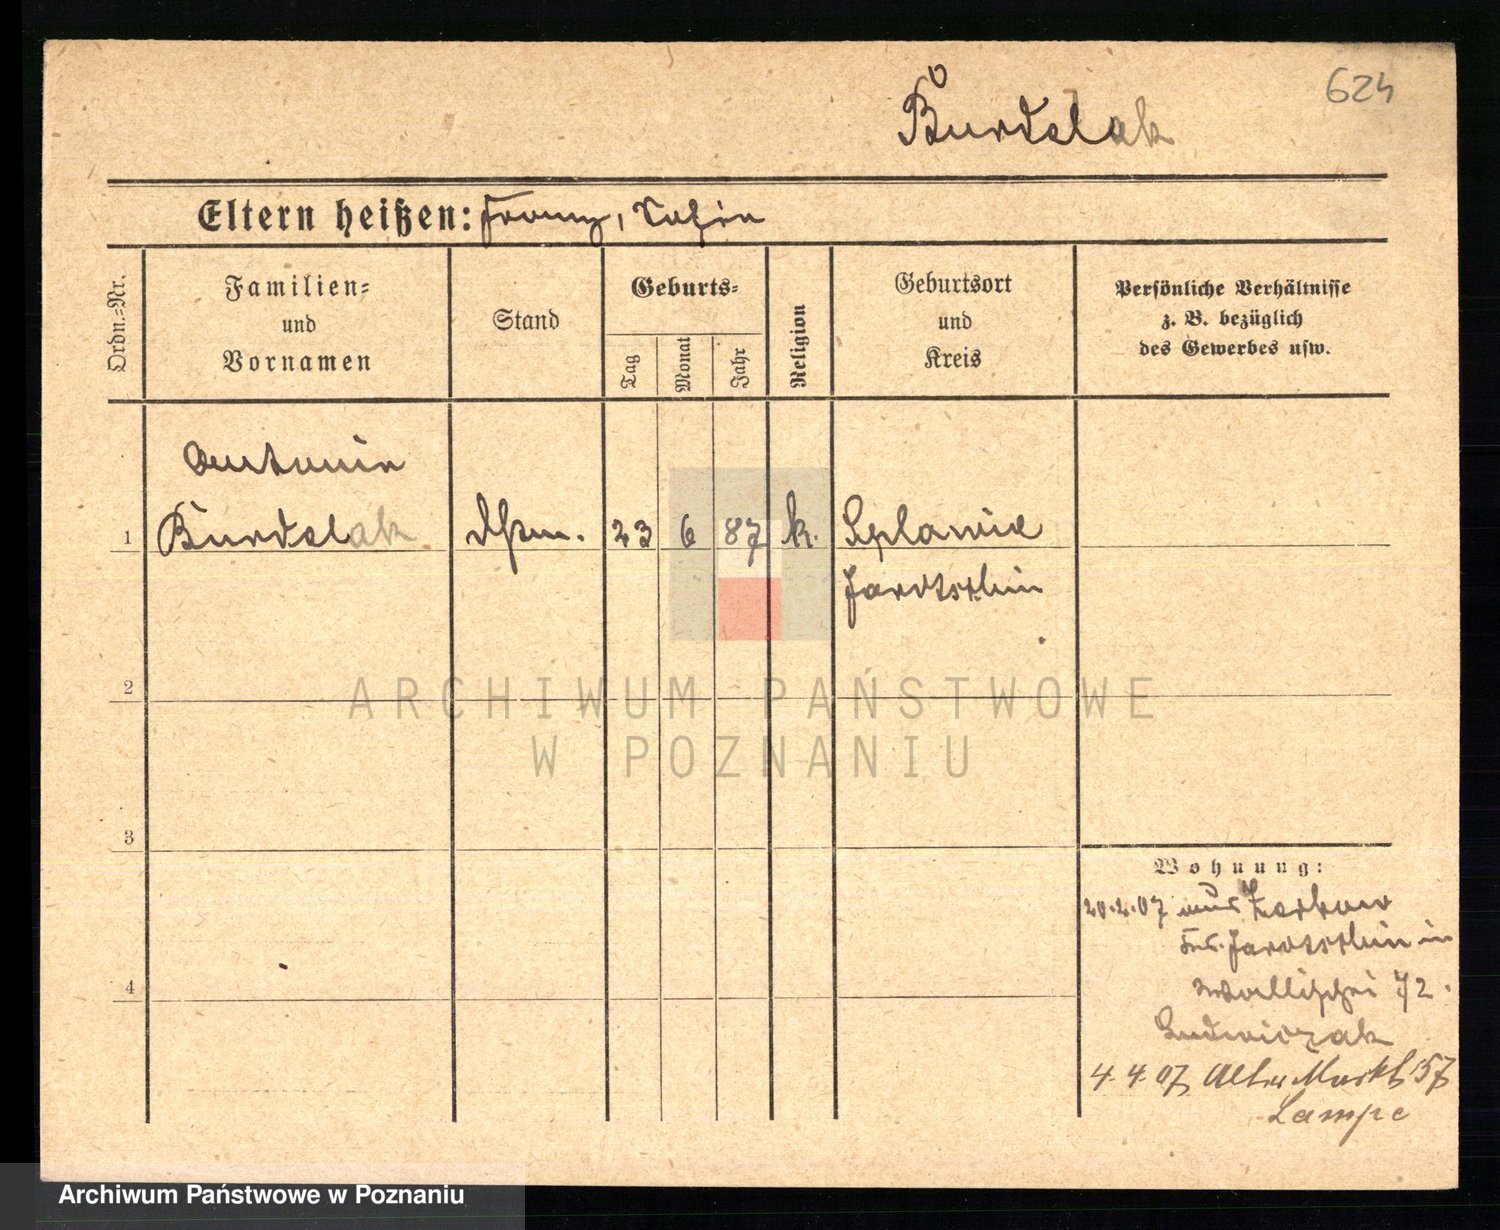 624
Burdelak
Eltern heißen: Franz, Sofie
Ordn.=Nr.
Familien=
und
Vornamen
Stand
Geburts=
Tag
Monat
Jahr
Religion
Geburtsort
und
Kreis
Persönliche Verhältnisse
z. B. bezüglich
des Gewerbes usw.
Antonie
1 Burdelak 23 6 87 k.
Jarotschin
2
ARCHIWUM PAŃSTWOWE
W POZNANIU
3
Wohnung:
20.2.07 aus Zerkow
Jarotschin in
Wallischei 72.
Ludwiczak
4
4.4.07 Alter Markt 57
Lampe
Archiwum Państwowe w Poznaniu